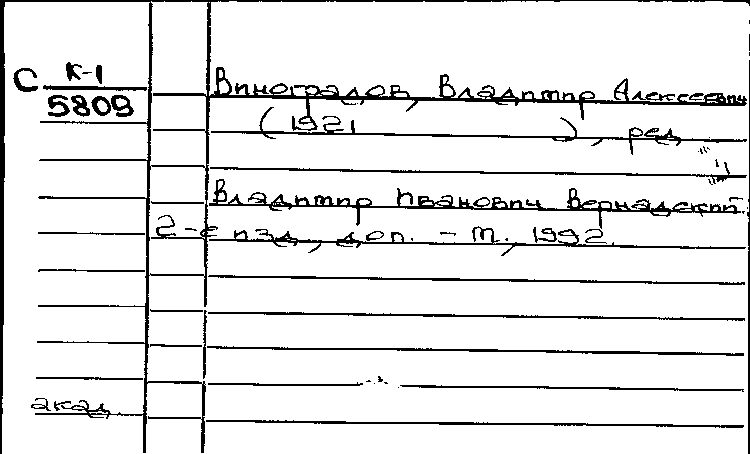 С К-1
5809
Виноградов, Владимир Алексеевич
(1921 ), ред.
Владимир Иванович Вернадский.
2-е изд., доп. - М., 1992.
акад.